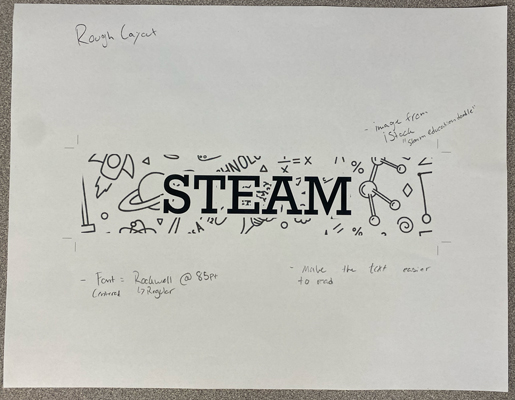 Rough Layout
- image from
iStock
"steam education doodle"
CHNOLO
÷ = x
%
STEAM
%
- Font = Rockwell @ 85pt
Centered ↳ Regular
- Make the text easier
to read